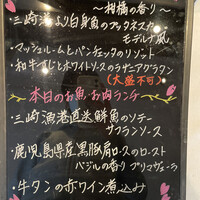 〜柑橘の香り〜
・三崎港より白身魚のプッタネスカ
モデルナ風
・マッシュルームとパンチェッタのリゾット
・和牛すじとホワイトソースのラザニアグラタン
(大盛不可)
本日のお魚・お肉ランチ
・三崎漁港直送鮮魚のソテー
サフランソース
・鹿児島県産黒豚肩ロースのロースト
バジルの香り プリマヴェーラ
・牛タンの赤ワイン煮込み